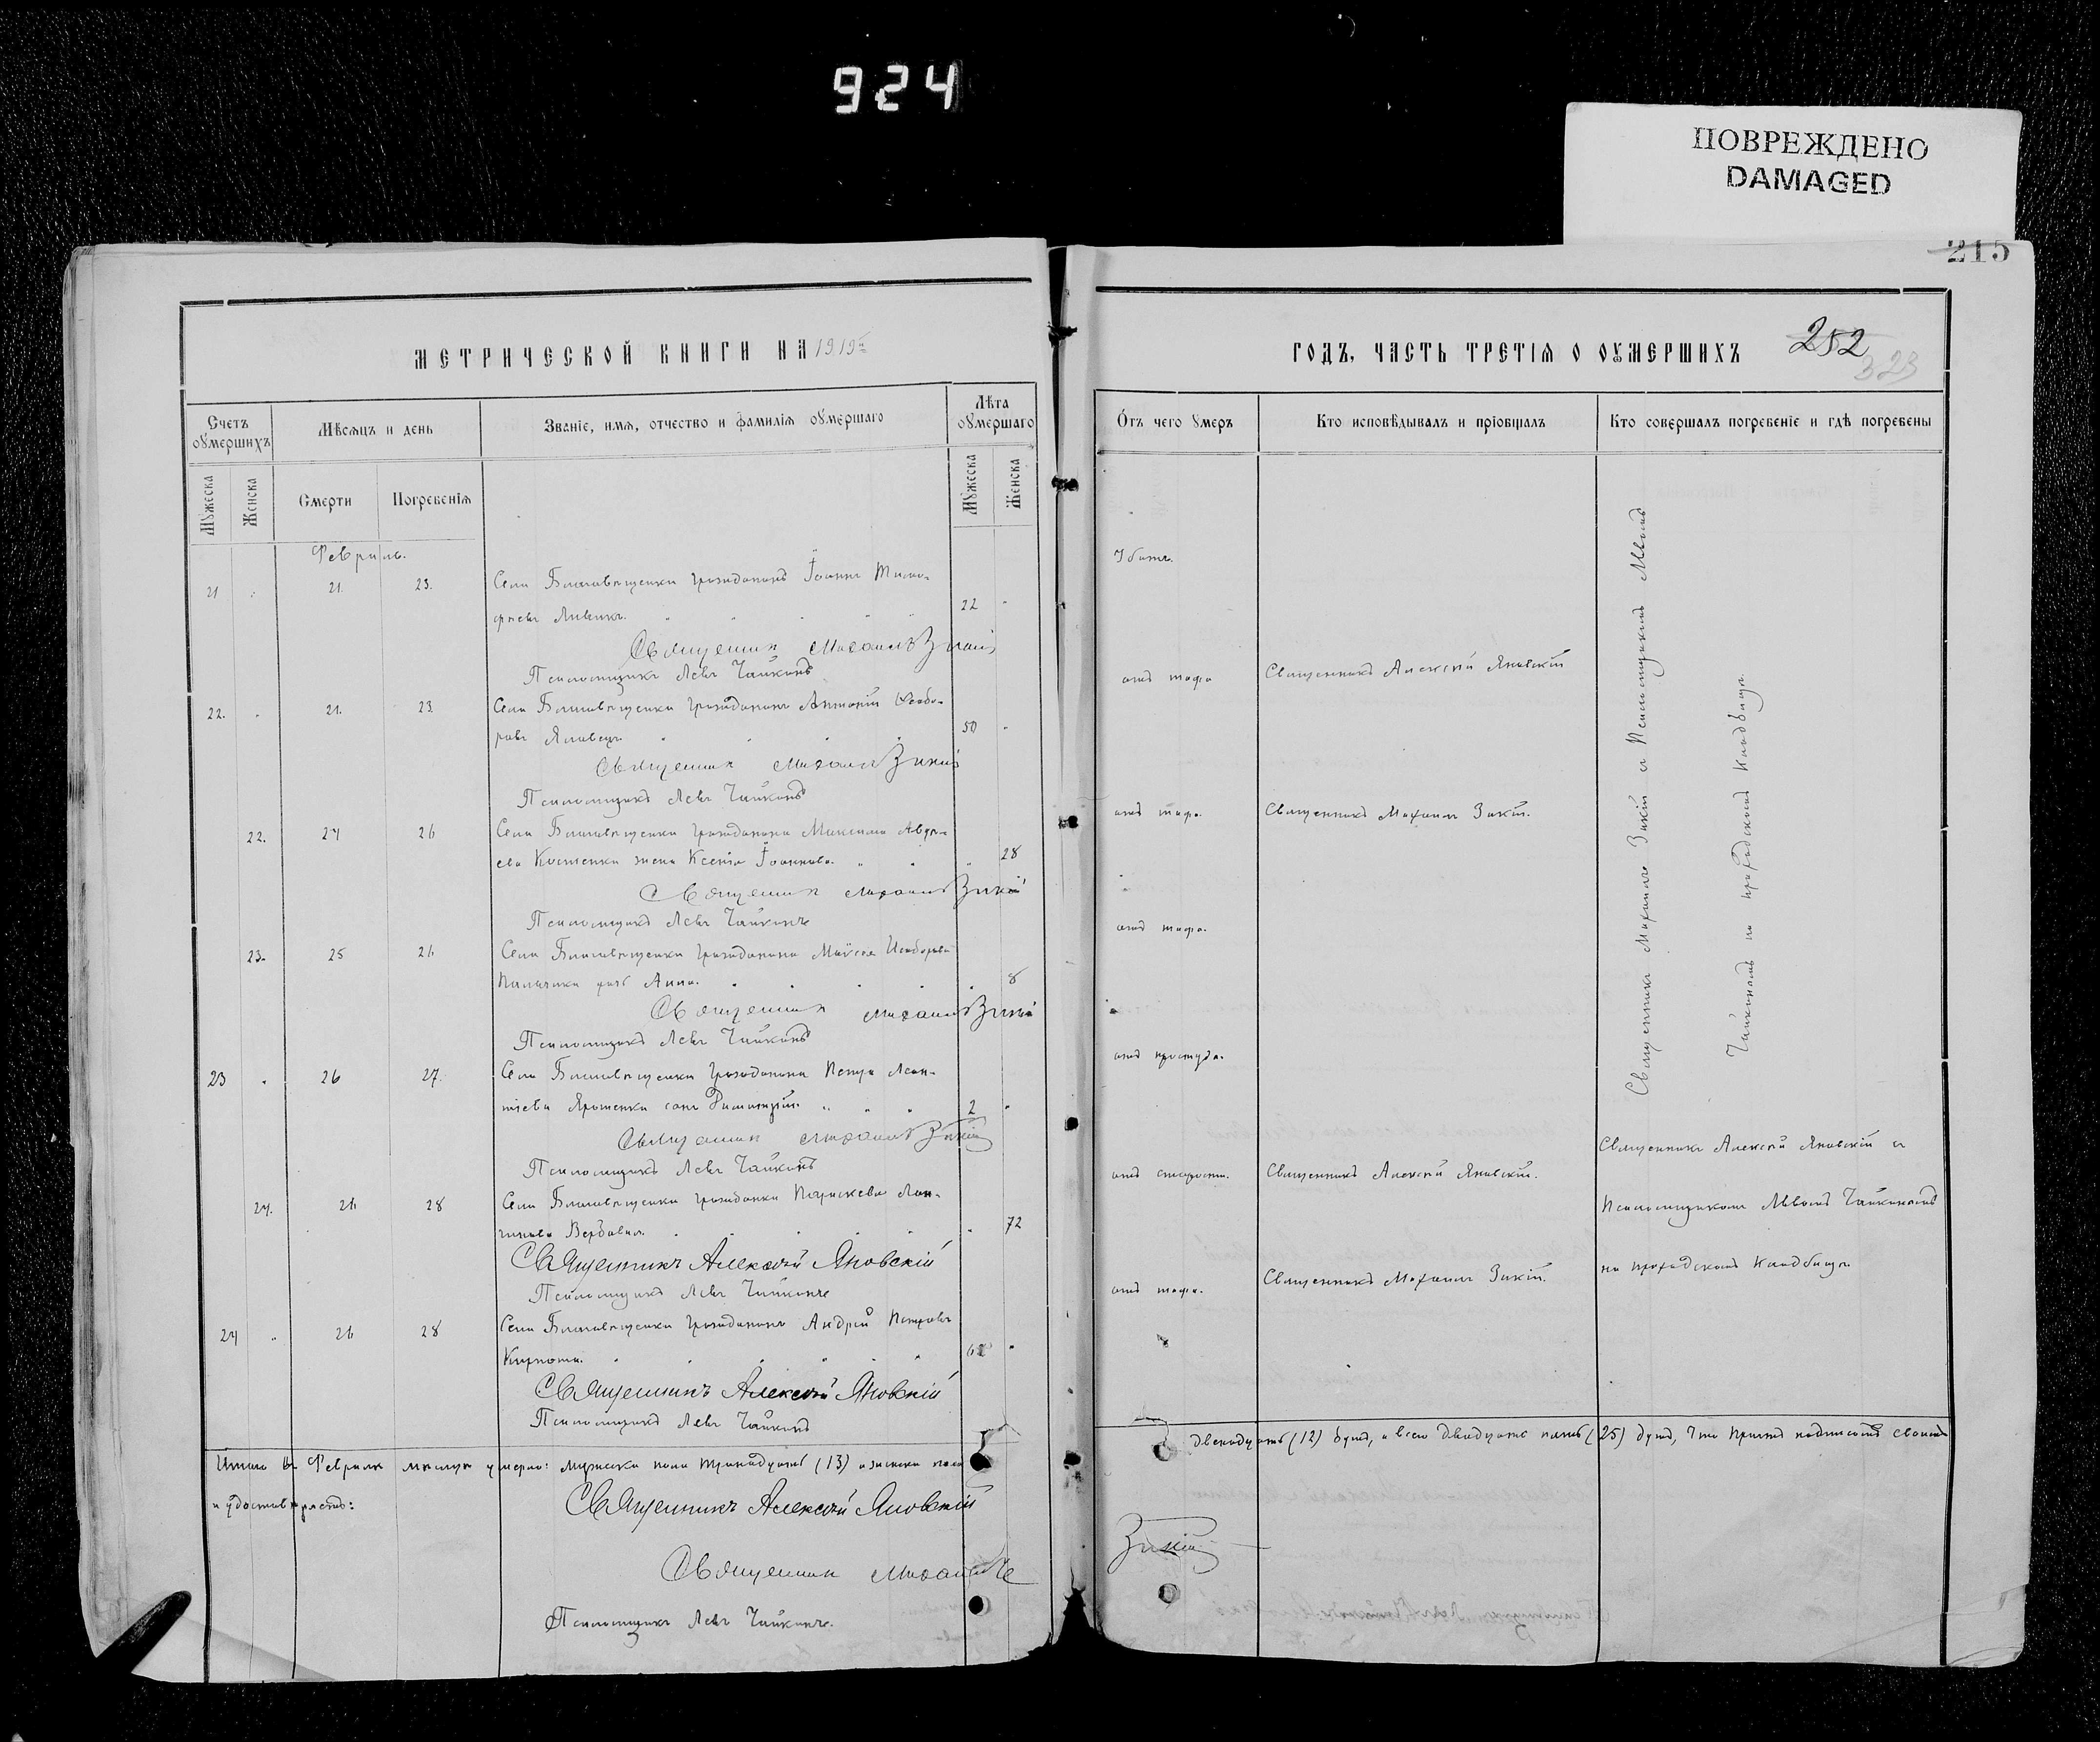 924
ПОВРЕЖДЕНО
DAMAGED
215
МЕТРИЧЕСКОЙ КНИГИ НА 1919й
ГОДЪ, ЧАСТЬ ТРЕТІЯ О ОУМЕРШИХЪ
252
323
Счетъ оумершихъ
Мѣсяцъ и день
Званіе, имя, отчество и фамилія оумершаго
Лѣта оумершаго
Отъ чего умеръ
Кто исповѣдывалъ и пріобщалъ
Кто совершалъ погребеніе и гдѣ погребены
Мужеска
Женска
Смерти
Погребенія
Мужеска
Женска
Февраль.
21 21. 23. Села Благовѣщенки гражданинъ Іоаннъ Тимо-
фѣевъ 22
Убитъ.
Священник Михаилъ Зикій
Псаломщикъ Левъ Чайкинъ
22. 21. 23. Села Благовѣщенки гражданинъ Антоній Ѳеодо-
ровъ Яловецъ. 50
отъ тифа
Священникъ Алексѣй Яновскій
Священник Михаил Зикий
Псаломщикъ Левъ Чайкинъ
22. 24 26 Села Благовѣщенки гражданина Максима Авдѣ-
ева Костенка жена Ксенія Іоаннова. 28
отъ тифа.
Священникъ Михаилъ Зикій.
Священник Михаилъ Зикий
Псаломщикъ Левъ Чайкинъ
23. 25 26 Села Благовѣщенки гражданина Моѵсея Исидорова
дочь Анна. 8
отъ тифа.
Священник Михаилъ Зикий
Псаломщикъ Левъ Чайкинъ
23 26 27. Села Благовѣщенки гражданина Петра Леон-
тіева Ярошенка сынъ Димитрій. 2
отъ простуды.
Священник Михаилъ Зикій
Псаломщикъ Левъ Чайкинъ
24. 26 28 Села Благовѣщенки гражданка Параскева Лон-
гинова 72
отъ старости.
Священникъ Алексѣй Яновскій.
Священникъ Алексѣй Яновскій
Псаломщикъ Левъ Чайкинъ
24 26 28 Села Благовѣщенки гражданинъ Андрей Петровъ
Кирпота.
отъ тифа.
Священникъ Михаилъ Зикій.
Священникъ Алексѣй Яновскій
Псаломщикъ Левъ Чайкинъ
Священникъ Михаилъ Зикій съ Псаломщикомъ Львомъ
Чайкинымъ на приходскомъ кладбищѣ.
Священникъ Алексѣй Яновскій съ
Псаломщикомъ Львомъ Чайкинымъ
на приходскомъ кладбищѣ.
Итого въ Февралѣ мѣсяцѣ умерло: мужеска пола тринадцать (13) а женска пола
двенадцать (12) душъ, а всего двадцать пять (25) душъ, что причтъ подписомъ своимъ
и удостовѣряетъ:
Священникъ Алексѣй Яновскій
Священник Михаилъ
Зикій
Псаломщикъ Левъ Чайкинъ.